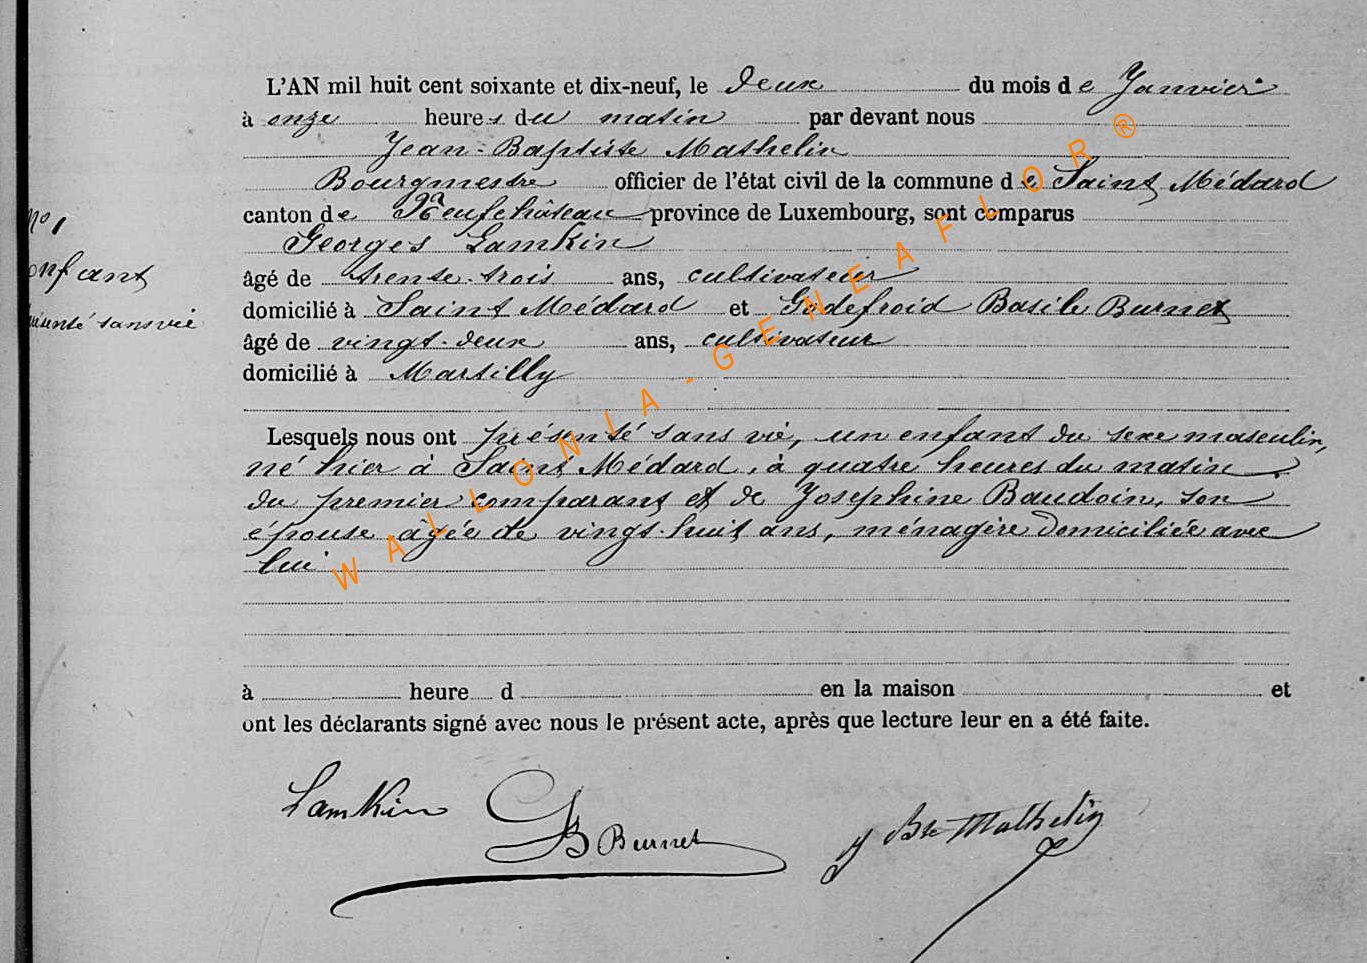 L'AN mil huit cent soixante et dix-neuf, le deux du mois de Janvier
à onze heures du matin par devant nous
Jean-Baptiste Mathelin
Bourgmestre officier de l'état civil de la commune de Saint Médard
canton de Neufchâteau province de Luxembourg, sont comparus
Georges Lamkin
âgé de trente-trois ans, cultivateur
domicilié à Saint Médard et Godefroid Basile Burnet
âgé de vingt-deux ans, cultivateur
domicilié à Martilly
Lesquels nous ont présenté sans vie, un enfant du sexe masculin,
né hier à Saint Médard, à quatre heures du matin
du premier comparant et de Josephine Baudoin, son
épouse âgée de vingt-huit ans, ménagère domiciliée avec
lui
à heure d en la maison et
ont les déclarants signé avec nous le présent acte, après que lecture leur en a été faite.
No 1
enfant
sans vie
Lamkin
GB Burnet
J Bte Mathelin
WALLONIA-GENEAFLOR®